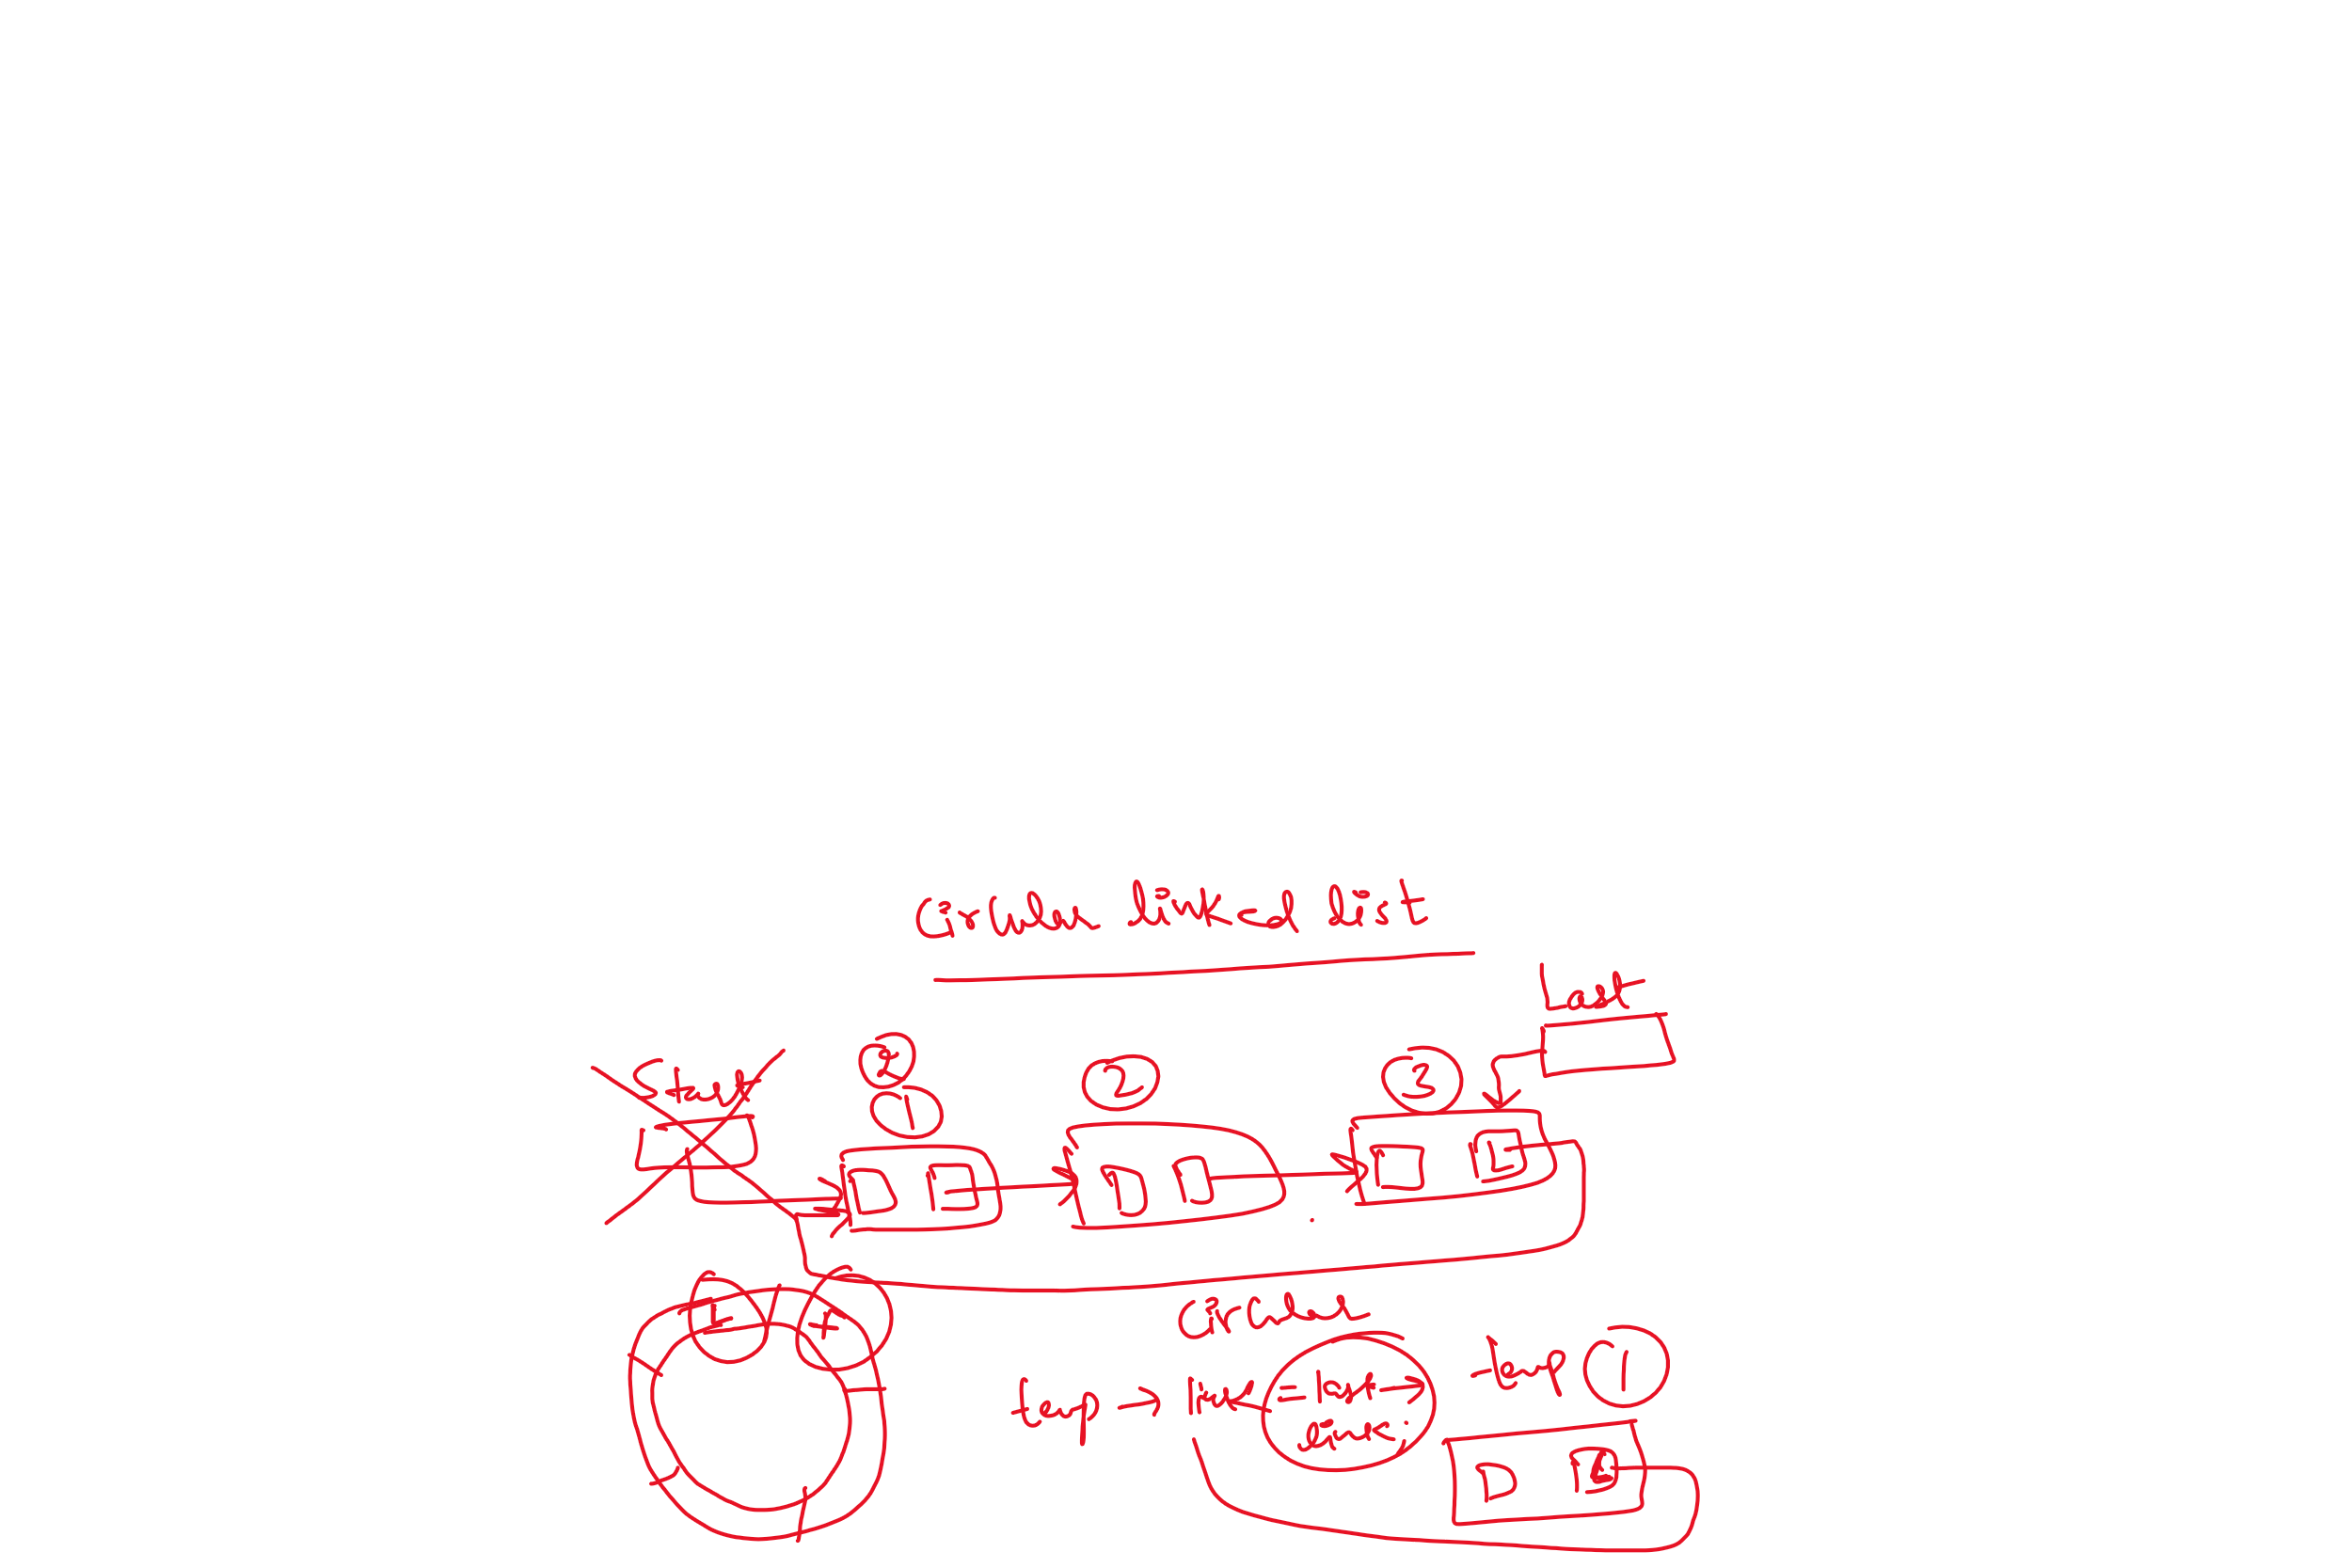 Circular linked list
Last
Start
2
1
2
3
D
D
D
F
R
Circular
temp → link = last →
link;
temp 1
D